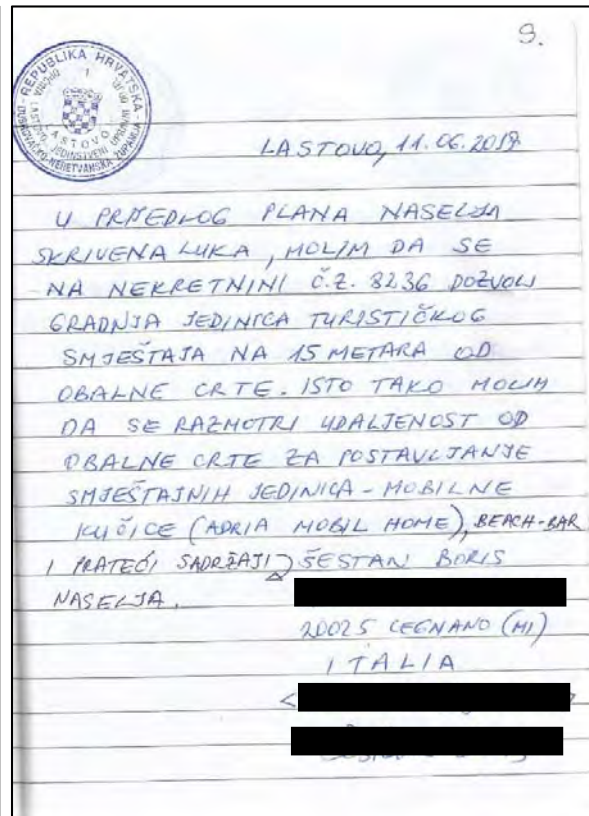 9.
REPUBLIKA HRVATSKA
DUBROVAČKO-NERETVANSKA ŽUPANIJA
LASTOVO
JEDINSTVENI UPRAVNI
LASTOVO, 11.06.2019
U PRIJEDLOG PLANA NASELJA
SKRIVENA LUKA, MOLIM DA SE
NA NEKRETNINI Č.Z. 8236 DOZVOLI
GRADNJA JEDINICA TURISTIČKOG
SMJEŠTAJA NA 15 METARA OD
OBALNE CRTE. ISTO TAKO MOLIM
DA SE RAZMOTRI UDALJENOST OD
OBALNE CRTE ZA POSTAVLJANJE
SMJEŠTAJNIH JEDINICA - MOBILNE
KUĆICE (ADRIA MOBIL HOME), BEACH-BAR
I PRATEĆI SADRŽAJI) ŠESTAN BORIS
NASELJA.
20025 LEGNANO (MI)
ITALIA